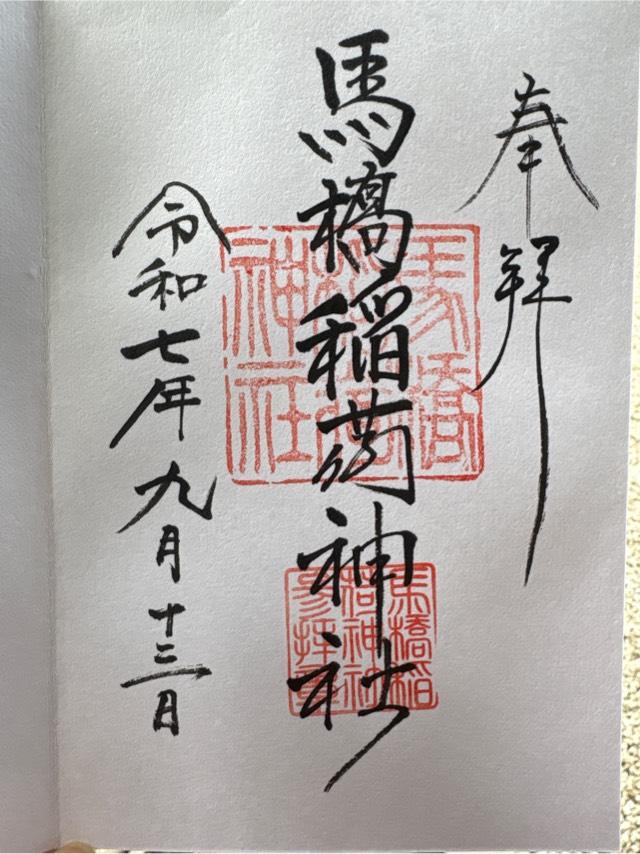 奉拝
馬橋稲荷神社
令和七年九月十三日
馬橋
稲荷
神社
馬橋稲
荷神社
参拝章